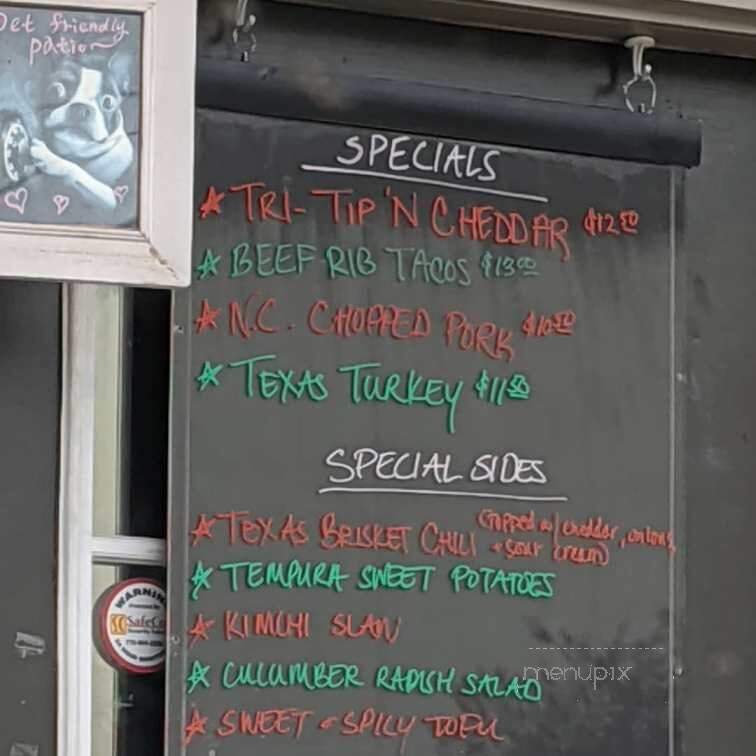 Pet friendly
patio
SPECIALS
TRI-TIP 'N CHEDDAR $12.50
BEEF RIB TACOS $13.00
N.C. CHOPPED PORK $10.50
TEXAS TURKEY $11.50
SPECIAL SIDES
TEXAS BRISKET CHILI (Topped w/ cheddar, onions,
+ sour cream)
TEMPURA SWEET POTATOES
KIMCHI SLAW
CUCUMBER RADISH SALAD
SWEET & SPICY TOFU
WARNING
SafeCo
menupix